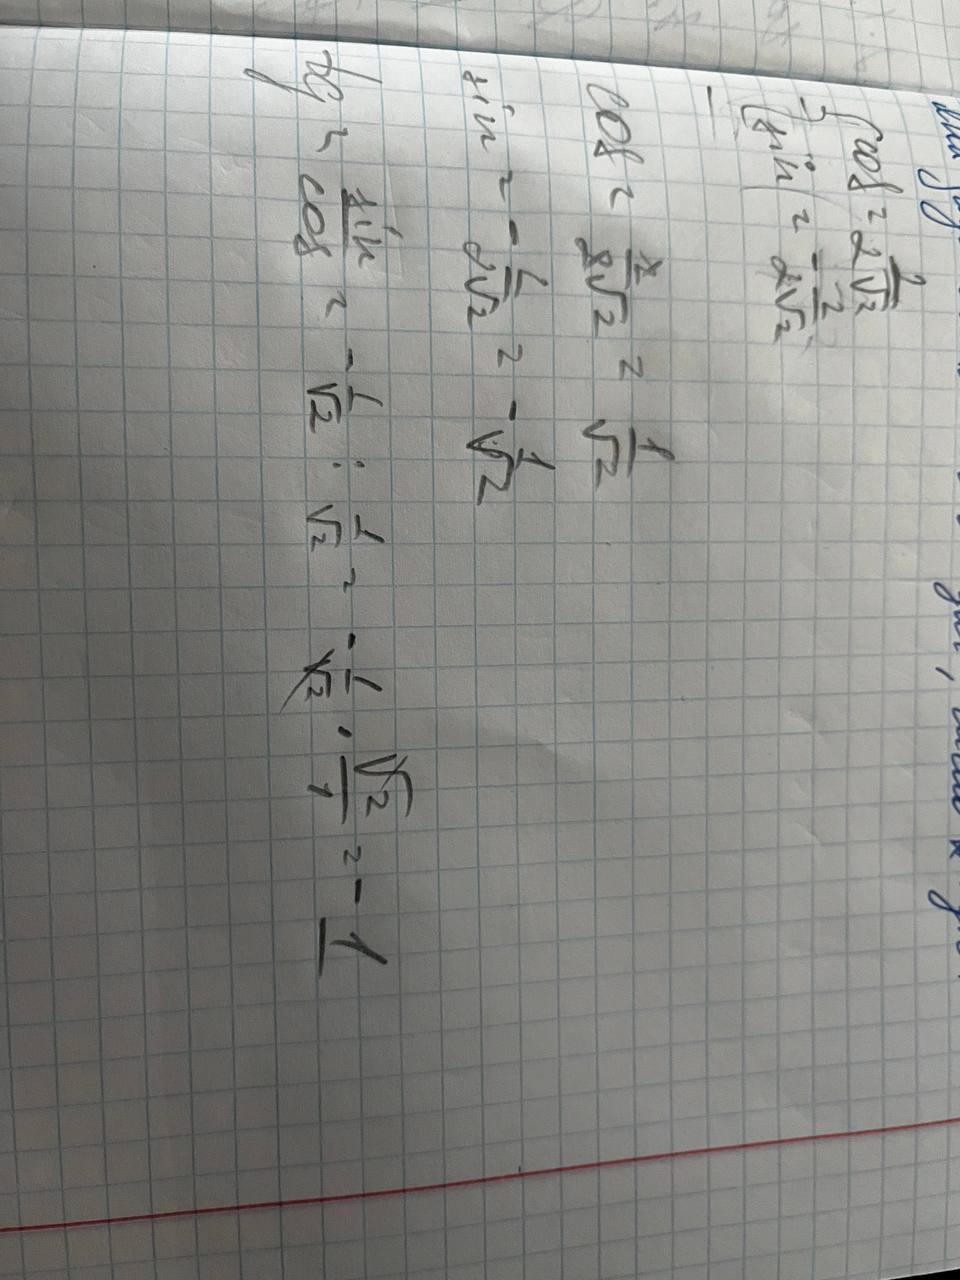 {cos = 2/2√2
{sin = -2/2√2
cos = 2/2√2 = 1/√2
sin = -1/2√2 = -1/√2
tg = sin/cos = -1/√2 : 1/√2 = -1/√2 · √2/1 = -1